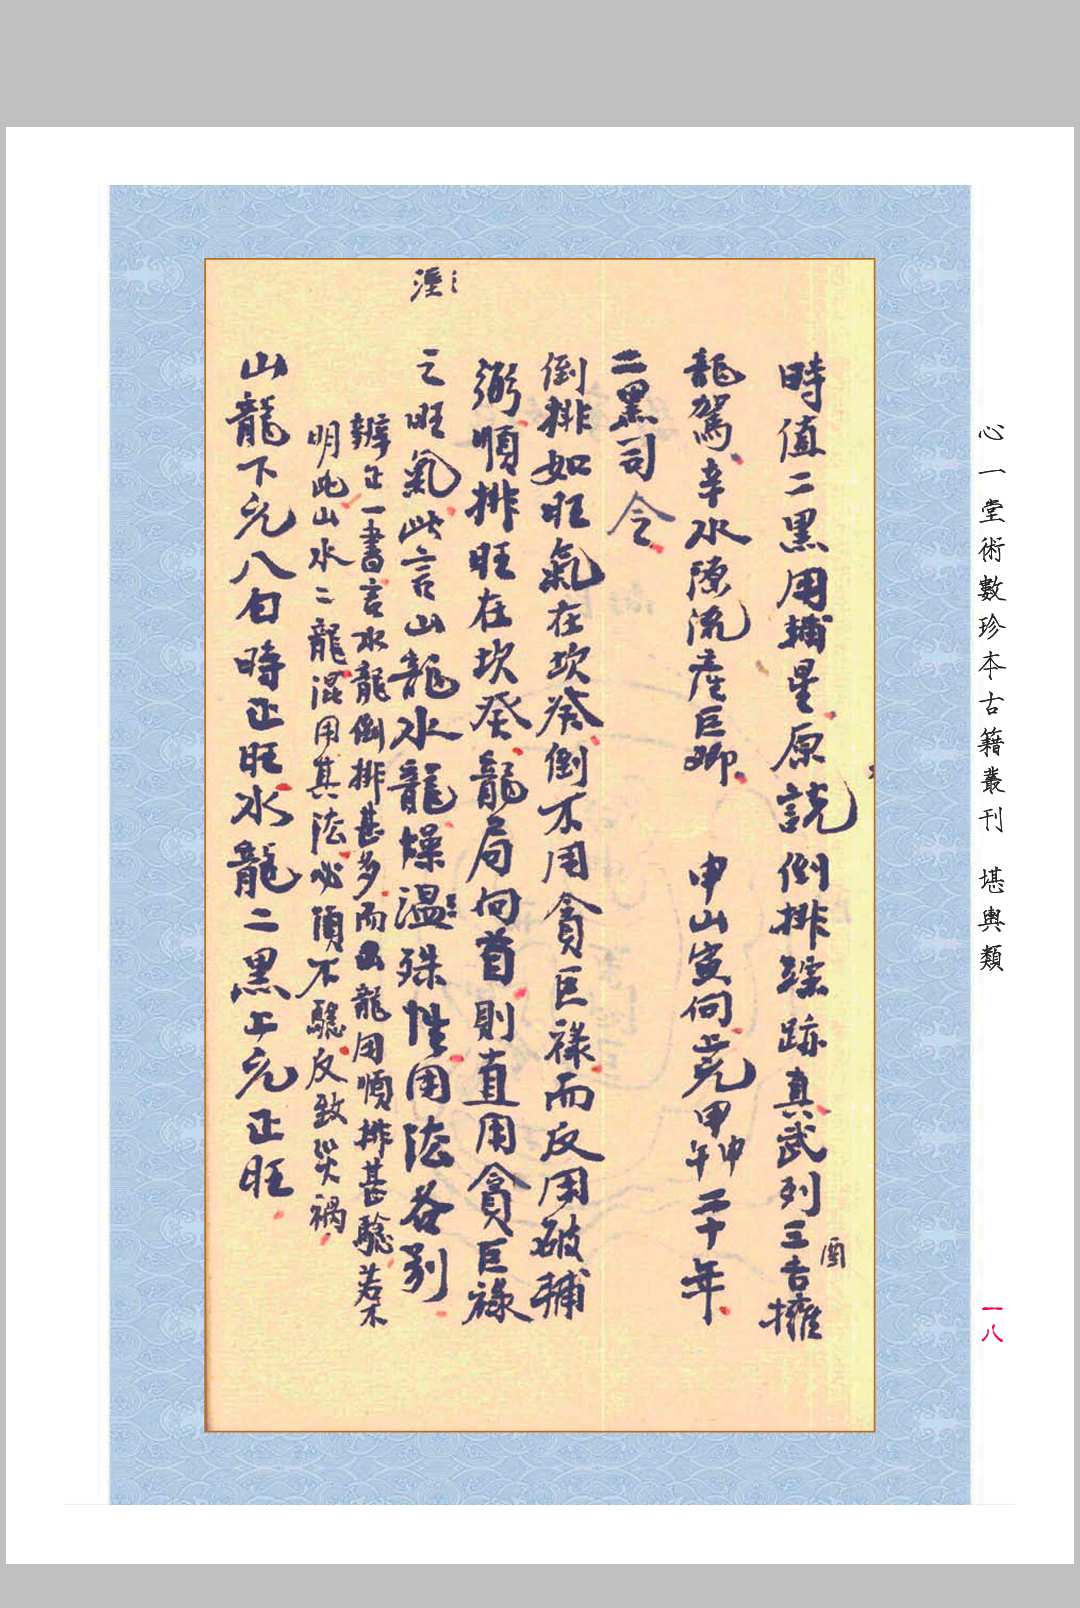 心一堂術數珍本古籍叢刊 堪輿類
一八
時值二黑用輔星原說倒排踪跡真武列三吉擁
酉
龍駕辛水源流產巨卿 申山寅向上元甲申甲午二十年
二黑司令
倒排如旺氣在坎癸倒不用貪巨祿而反用破輔
弼順排旺在坎癸龍局向首則直用貪巨祿
之旺氣此言山龍水龍燥溫殊性用法各別
溼
辨正一書言水龍倒排甚多而山龍用順排甚驗若不
明此山水二龍混用其法必須不驗反致災禍
山龍下元八白時正旺水龍二黑上元正旺